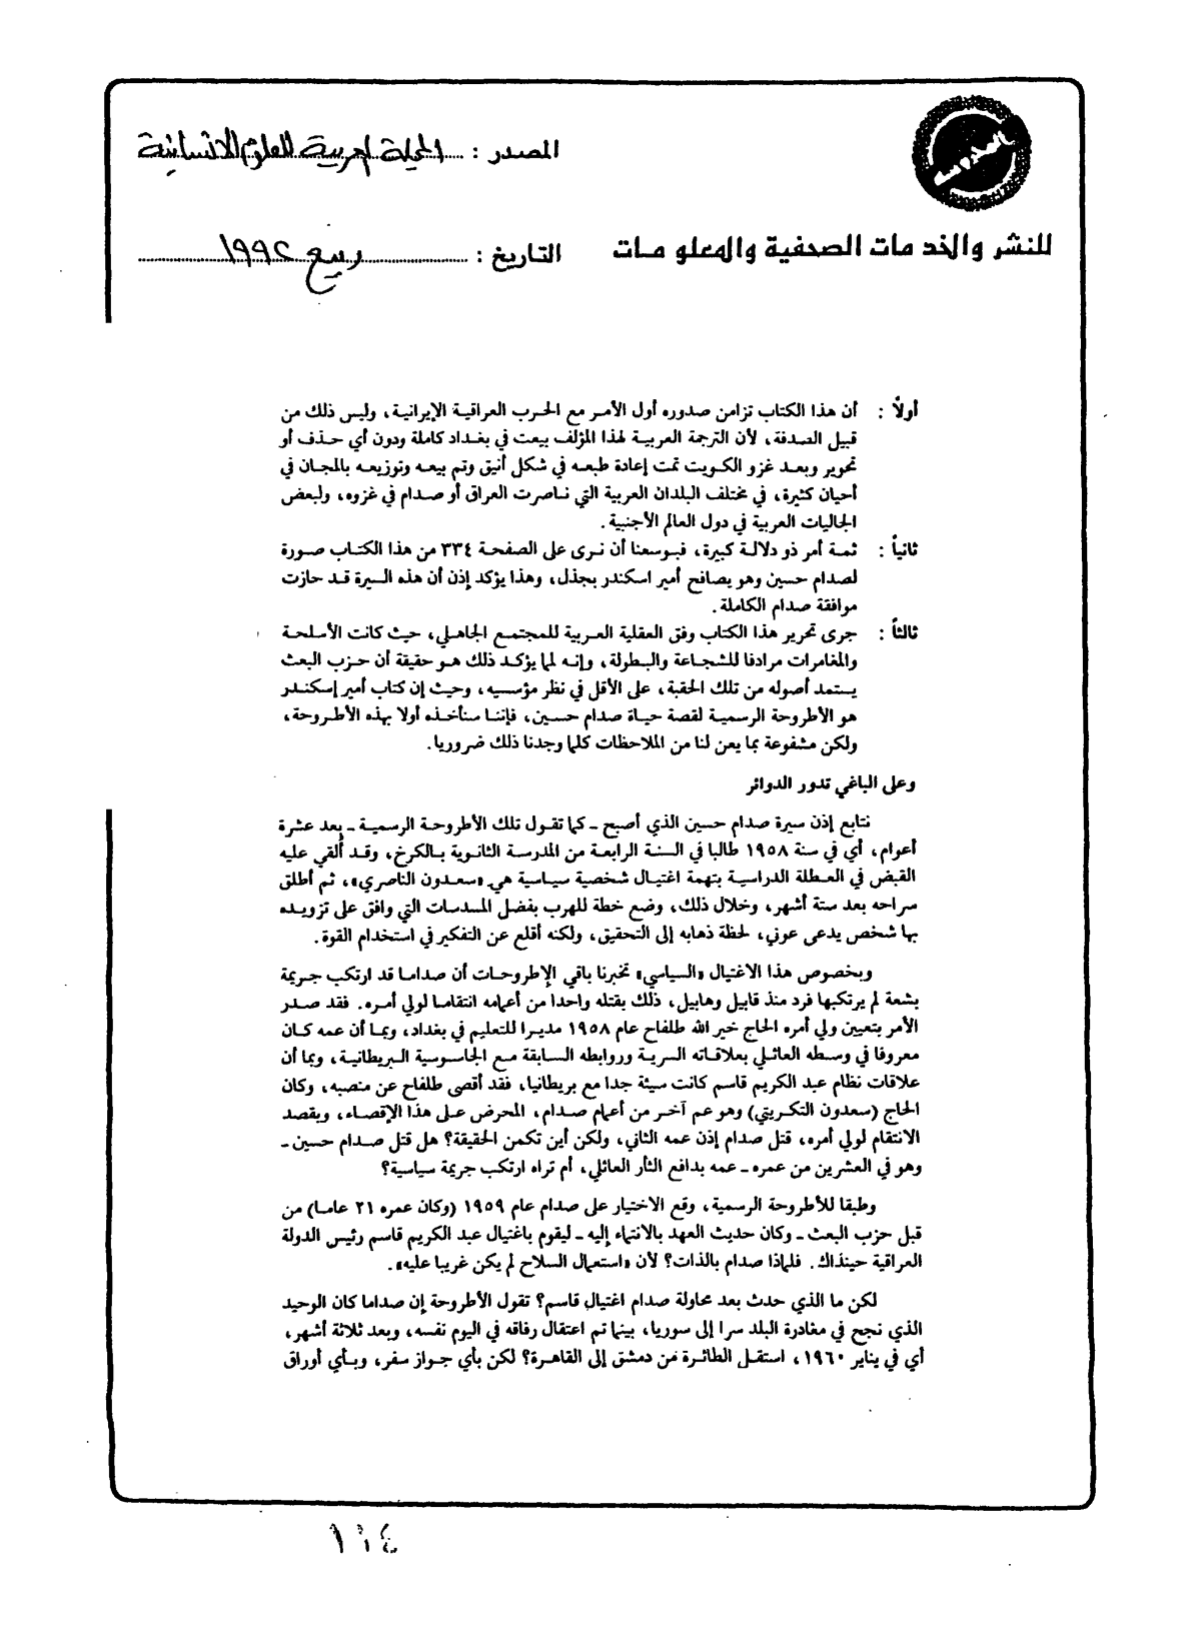 المصدر : المجلة العربية للعلوم الانسانية
للنشر والخدمات الصحفية والمعلومات
التاريخ : ربيع ١٩٩٢
أولاً : أن هذا الكتاب تزامن صدوره أول الأمر مع الحرب العراقية الإيرانية، وليس ذلك من
قبيل الصدفة، لأن الترجمة العربية لهذا المؤلف بيعت في بغداد كاملة ودون أي حذف أو
تحوير وبعد غزو الكويت تمت إعادة طبعه في شكل أنيق وتم بيعه وتوزيعه بالمجان في
أحيان كثيرة، في مختلف البلدان العربية التي ناصرت العراق أو صدام في غزوه، ولبعض
الجاليات العربية في دول العالم الأجنبية.
ثانياً : ثمة أمر ذو دلالة كبيرة، فبوسعنا أن نرى على الصفحة ٣٣٤ من هذا الكتاب صورة
لصدام حسين وهو يصافح أمير اسكندر بجذل، وهذا يؤكد إذن أن هذه السيرة قد حازت
موافقة صدام الكاملة.
ثالثاً : جرى تحرير هذا الكتاب وفق العقلية العربية للمجتمع الجاهلي، حيث كانت الأسلحة
والمغامرات مرادفا للشجاعة والبطولة، وإنه لما يؤكد ذلك هو حقيقة أن حزب البعث
يستمد أصوله من تلك الحقبة، على الأقل في نظر مؤسسيه، وحيث إن كتاب أمير إسكندر
هو الأطروحة الرسمية لقصة حياة صدام حسين، فإننا سنأخذه أولا بهذه الأطروحة،
ولكن مشفوعة بما يعن لنا من الملاحظات كلما وجدنا ذلك ضروريا.
وعلى الباغي تدور الدوائر
نتابع إذن سيرة صدام حسين الذي أصبح - كما تقول تلك الأطروحة الرسمية - بعد عشرة
أعوام، أي في سنة ١٩٥٨ طالبا في السنة الرابعة من المدرسة الثانوية بالكرخ، وقد ألقي عليه
القبض في العطلة الدراسية بتهمة اغتيال شخصية سياسية هي «سعدون الناصري»، ثم أطلق
سراحه بعد ستة أشهر، وخلال ذلك، وضع خطة للهرب بفضل المسدسات التي وافق على تزويده
بها شخص يدعى عوني، لحظة ذهابه إلى التحقيق، ولكنه أقلع عن التفكير في استخدام القوة.
وبخصوص هذا الاغتيال «السياسي» تخبرنا باقي الإطروحات أن صداما قد ارتكب جريمة
بشعة لم يرتكبها فرد منذ قابيل وهابيل، ذلك بقتله واحدا من أعمامه انتقاما لولي أمره. فقد صدر
الأمر بتعيين ولي أمره الحاج خير الله طلفاح عام ١٩٥٨ مديرا للتعليم في بغداد، وبما أن عمه كان
معروفا في وسطه العائلي بعلاقاته السرية وروابطه السابقة مع الجاسوسية البريطانية، وبما أن
علاقات نظام عبد الكريم قاسم كانت سيئة جدا مع بريطانيا، فقد أقصى طلفاح عن منصبه، وكان
الحاج (سعدون التكريتي) وهو عم آخر من أعمام صدام، المحرض على هذا الإقصاء، وبقصد
الانتقام لولي أمره، قتل صدام إذن عمه الثاني، ولكن أين تكمن الحقيقة؟ هل قتل صدام حسين -
وهو في العشرين من عمره - عمه بدافع الثأر العائلي، أم تراه ارتكب جريمة سياسية؟
وطبقا للأطروحة الرسمية، وقع الاختيار على صدام عام ١٩٥٩ (وكان عمره ٢١ عاما) من
قبل حزب البعث - وكان حديث العهد بالانتماء إليه - ليقوم باغتيال عبد الكريم قاسم رئيس الدولة
العراقية حينذاك. فلماذا صدام بالذات؟ لأن «استعمال السلاح لم يكن غريبا عليه».
لكن ما الذي حدث بعد محاولة صدام اغتيال قاسم؟ تقول الأطروحة إن صداما كان الوحيد
الذي نجح في مغادرة البلد سرا إلى سوريا، بينما تم اعتقال رفاقه في اليوم نفسه، وبعد ثلاثة أشهر،
أي في يناير ١٩٦٠، استقل الطائرة من دمشق إلى القاهرة؟ لكن بأي جواز سفر، وبأي أوراق